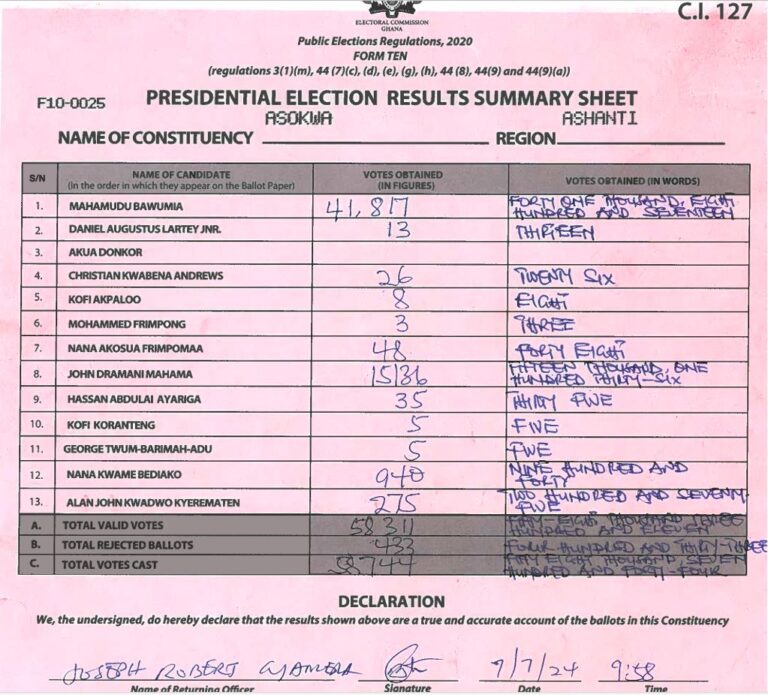 C.I. 127
ELECTORAL COMMISSION
GHANA
Public Elections Regulations, 2020
FORM TEN
(regulations 3(1)(m), 44 (7)(c), (d), (e), (g), (h), 44 (8), 44(9) and 44(9)(a))
F10-0025 PRESIDENTIAL ELECTION RESULTS SUMMARY SHEET
ASOKWA ASHANTI
NAME OF CONSTITUENCY REGION
S/N NAME OF CANDIDATE VOTES OBTAINED VOTES OBTAINED (IN WORDS)
(In the order in which they appear on the Ballot Paper) (IN FIGURES)
1. MAHAMUDU BAWUMIA 41,817 FORTY ONE THOUSAND, EIGHT
HUNDRED AND SEVENTEEN
2. DANIEL AUGUSTUS LARTEY JNR. 13 THIRTEEN
3. AKUA DONKOR
4. CHRISTIAN KWABENA ANDREWS 26 TWENTY SIX
5. KOFI AKPALOO 8 EIGHT
6. MOHAMMED FRIMPONG 3 THREE
7. NANA AKOSUA FRIMPOMAA 48 FORTY EIGHT
8. JOHN DRAMANI MAHAMA 15136 FIFTEEN THOUSAND, ONE
HUNDRED THIRTY-SIX
9. HASSAN ABDULAI AYARIGA 35 THIRTY FIVE
10. KOFI KORANTENG 5 FIVE
11. GEORGE TWUM-BARIMAH-ADU 5 FIVE
12. NANA KWAME BEDIAKO 940 NINE HUNDRED AND
FORTY
13. ALAN JOHN KWADWO KYEREMATEN 275 TWO HUNDRED AND SEVENTY
FIVE
A. TOTAL VALID VOTES 58311 FIFTY-EIGHT THOUSAND THREE
HUNDRED AND ELEVEN
B. TOTAL REJECTED BALLOTS 433 FOUR HUNDRED AND THIRTY-THREE
C. TOTAL VOTES CAST 58744 FIFTY EIGHT THOUSAND SEVEN
HUNDRED AND FORTY-FOUR
DECLARATION
We, the undersigned, do hereby declare that the results shown above are a true and accurate account of the ballots in this Constituency
JOSEPH ROBERT 9:58
Name of Returning Officer Signature Date Time